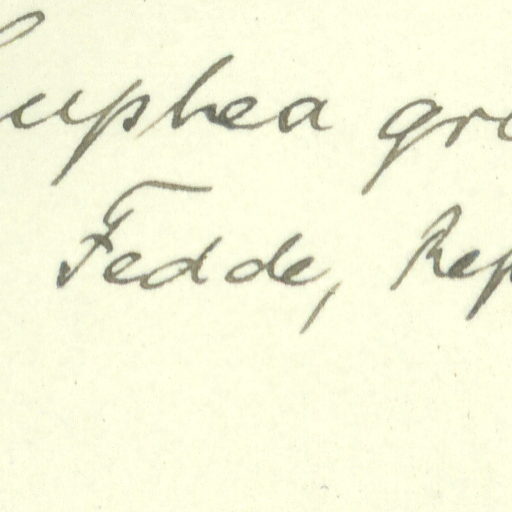 Cuphea gra
Fedde, Rep